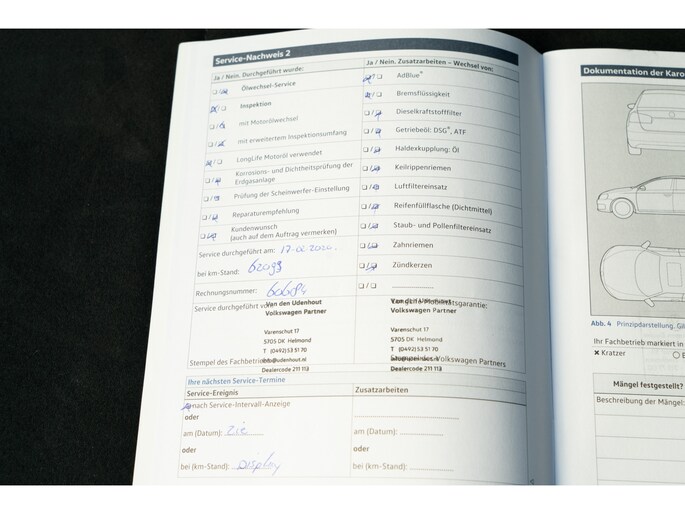 Service-Nachweis 2
Ja / Nein, Durchgeführt wurde:
Ölwechsel-Service
Inspektion
mit Motorölwechsel
mit erweitertem Inspektionsumfang
LongLife Motoröl verwendet
Korrosions- und Dichtheitsprüfung der
Erdgasanlage
Prüfung der Scheinwerfer-Einstellung
Reparaturempfehlung
Kundenwunsch
(auch auf dem Auftrag vermerken)
Service durchgeführt am: 17-02-2020.
bei km-Stand: 62093
Rechnungsnummer: 60684
Service durchgeführt von:
Van den Udenhout
Volkswagen Partner
Varenschut 17
5705 DK Helmond
T (0492) 53 51 70
info@udenhout.nl
Dealercode 211 113
Stempel des Fachbetriebs
Ja / Nein, Zusatzarbeiten – Wechsel von:
AdBlue®
Bremsflüssigkeit
Dieselkraftstofffilter
Getriebeöl: DSG®, ATF
Haldexkupplung: Öl
Keilrippenriemen
Luftfiltereinsatz
Reifenfüllflasche (Dichtmittel)
Staub- und Pollenfiltereinsatz
Zahnriemen
Zündkerzen
Van den Udenhout
Mobilitätsgarantie:
Volkswagen Partner
Varenschut 17
5705 DK Helmond
T (0492) 53 51 70
Volkswagen Partners
Dealercode 211 113
Ihre nächsten Service-Termine
Service-Ereignis
Zusatzarbeiten
nach Service-Intervall-Anzeige
oder
am (Datum): zie
am (Datum):
oder
oder
bei (km-Stand): Display
bei (km-Stand):
Dokumentation der Karo
Abb. 4 Prinzipdarstellung.
Ihr Fachbetrieb markiert in
x Kratzer
Mängel festgestellt?
Beschreibung der Mängel: